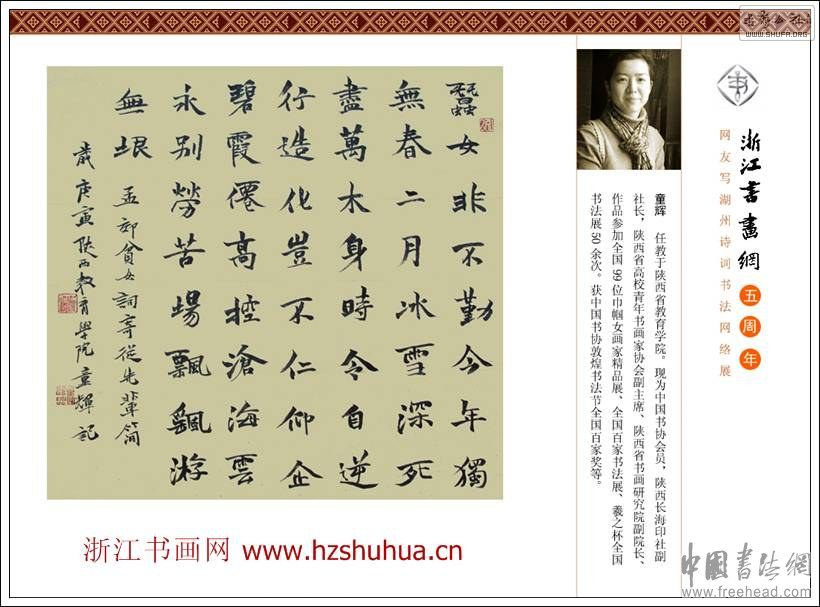 WWW.SHUFA.ORG
蠶女非不勤今年獨
無春二月冰雪深死
盡萬木身時令自逆
行造化豈不仁仰企
碧霞僊高控滄海雲
永別勞苦場飄颻游
無垠 孟郊貧女詞寄從先輩簡
歲庚寅陝西教育學院童輝記
浙江書畫網 五周年
网友写湖州诗词书法网络展
童辉 任教于陕西省教育学院。现为中国书协会员,陕西长海印社副
社长,陕西省高校青年书画家协会副主席、陕西省书画研究院副院长、
作品参加全国99位巾帼女画家精品展、全国百家书法展、羲之杯全国
书法展50余次。获中国书协敦煌书法节全国百家奖等。
浙江书画网 www.hzshuhua.cn
中國書法網
www.freehead.com